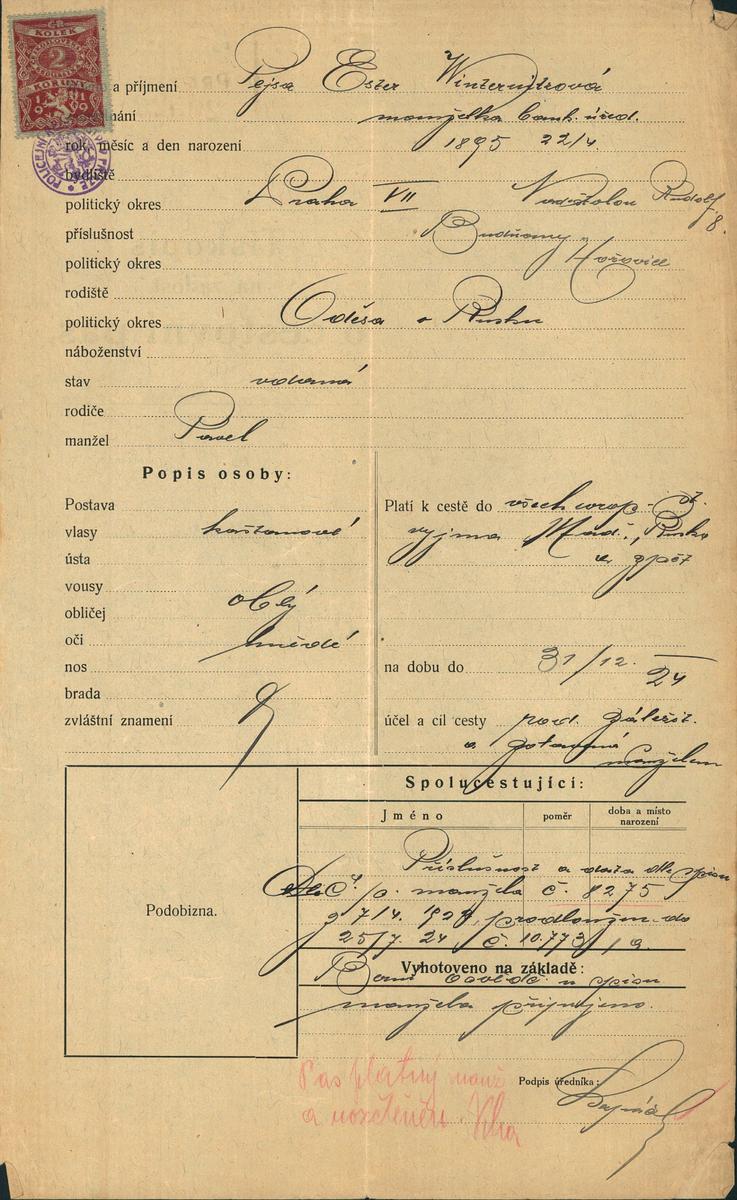 ČR
KOLEK
2
KORUNY
1919
POLICEJNÍ
a příjmení Pejsa Ester Winternitzová
manželka bank. úřed.
rok, měsíc a den narození 1895 22/4
bydliště
politický okres Praha VII
8.
příslušnost Budňany
politický okres Hořovice
rodiště
politický okres Oděsa v Rusku
náboženství
stav vdaná
rodiče
manžel Pavel
Popis osoby:
Postava
vlasy kaštanové
ústa
vousy
obličej oblý
oči hnědé
nos
brada
zvláštní znamení
Platí k cestě do všech evrop. st.
vyjma Maď., Ruska
a zpět
na dobu do 31/12. 24
účel a cíl cesty rod. záležit.
a zotavená
manželem
Spolucestující:
Jméno
poměr
doba a místo narození
Podobizna.
Příslušnost a data dle spisu
p. manžela č. 8275
prodloužen do
25/7 24 č. 10.773
Vyhotoveno na základě:
manžela připojeno.
Pas platný manž
Podpis úředníka: